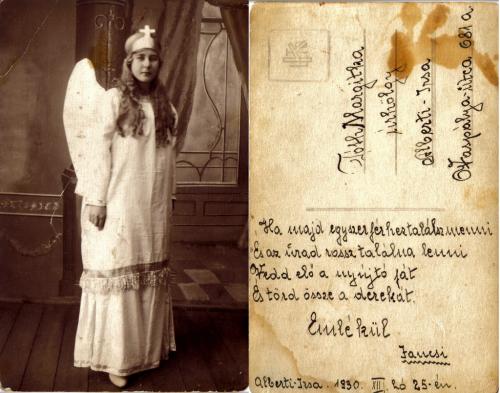 Tóth Margitka
úrhölgy
Alberti-Irsa
Vaspálya-utca 681a
Ha majd egyszer férhez találsz menni
És az urad rossz találna lenni
Vedd elő a nyujtó ját
És törd össze a derekát.
Emlékül
Jancsi
Alberti-Irsa. 1930. XII. hó 25-én.